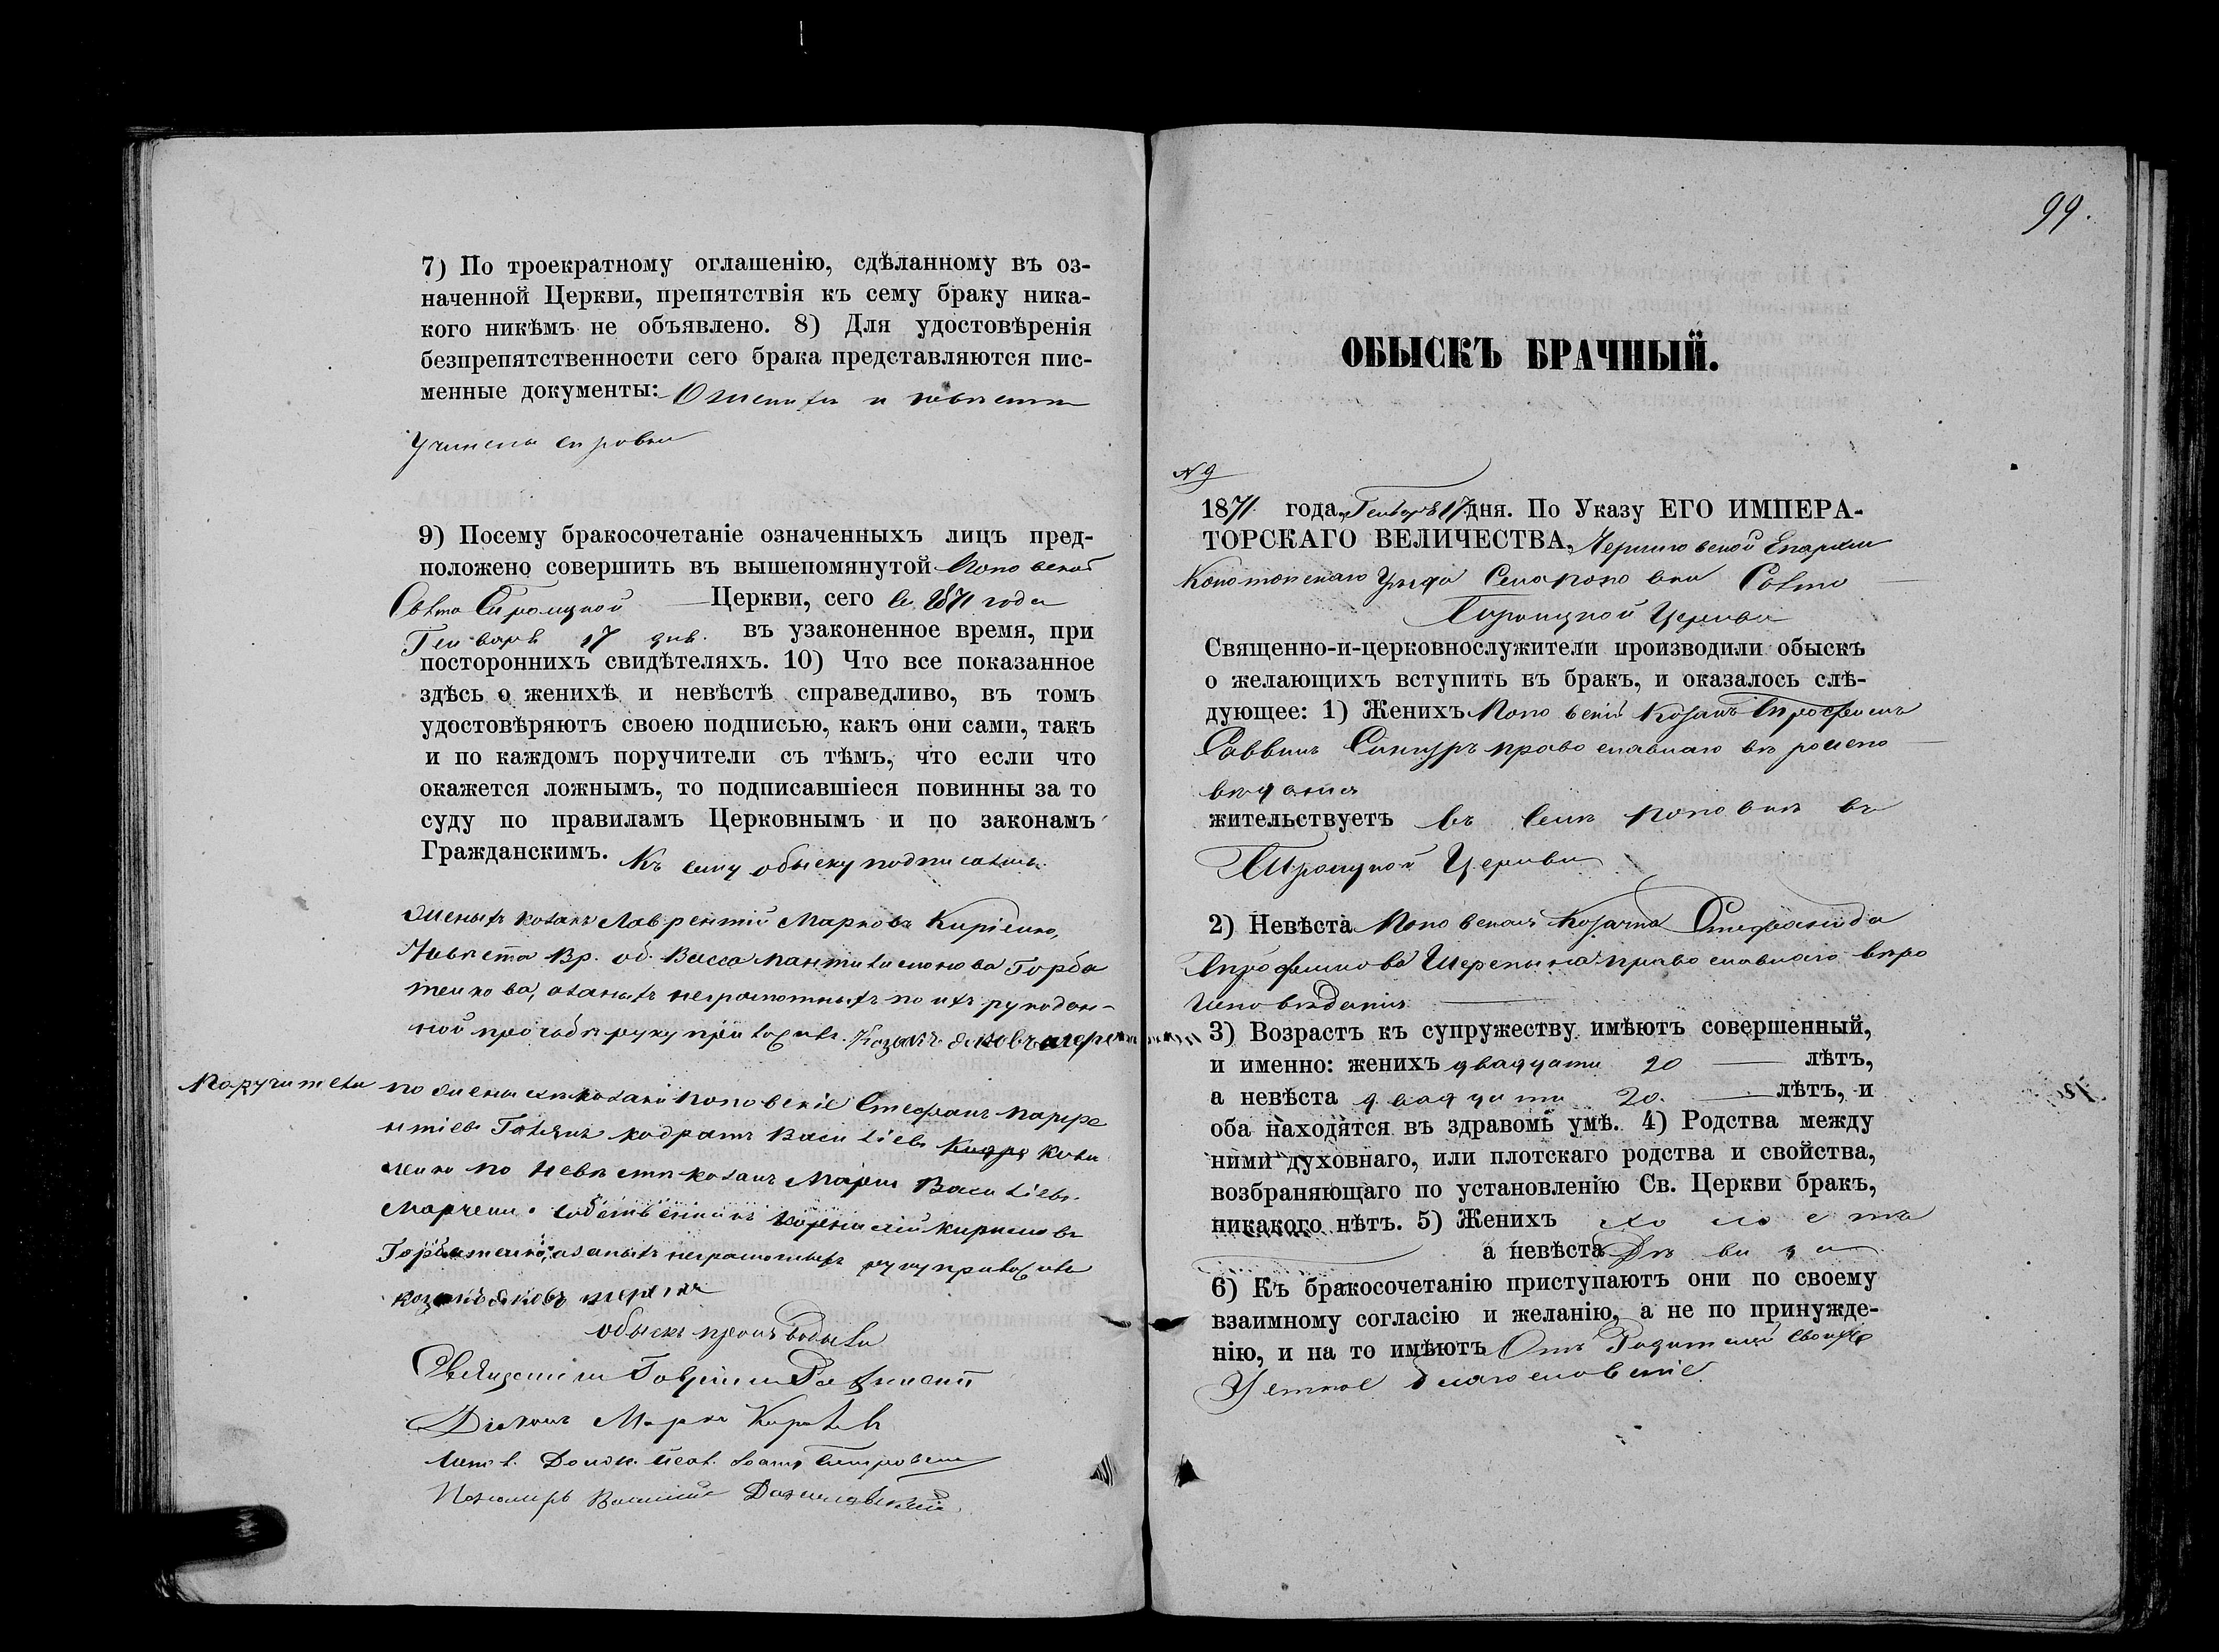 7) По троекратному оглашенію, сдѣланному въ оз-
наченной Церкви, препятствія къ сему браку ника-
кого никѣмъ не объявлено. 8) Для удостовѣренія
безпрепятственности сего брака представляются пис-
менные документы: О женихѣ и невѣстѣ
учинена справка
9) Посему бракосочетаніе означенныхъ лицъ пред-
положено совершить въ вышепомянутой Поповской
Свято Троицкой Церкви, сего 1871 года
Генваря 17 дня. въ узаконенное время, при
постороннихъ свидѣтеляхъ. 10) Что все показанное
здѣсь о женихѣ и невѣстѣ справедливо, въ томъ
удостовѣряютъ своею подписью, какъ они сами, такъ
и по каждомъ поручители съ тѣмъ, что если что
окажется ложнымъ, то подписавшіеся повинны за то
суду по правиламъ Церковнымъ и по законамъ
Гражданскимъ. Къ сему обыску подписались
Женихъ козакъ Лаврентій Марковъ Киріенко,
Невѣста Вр. об. Васса Пантилимонова Горба
тенкова, а за нихъ неграмотныхъ по ихъ рукодан-
ной прозбѣ руку приложилъ Козакъ Яковъ
Поручители по женихѣ козаки поповскіе Стефанъ
Кодратъ Василіевъ Кова
ленко по невѣстѣ козакъ Василіевъ
Марченко Кириловъ
Горбатенко, а за нихъ неграмотныхъ руку приложилъ
козакъ Яковъ
обыскъ производили
Священникъ Гавріилъ
Діяконъ Марко
Пономарь Василій
99.
ОБЫСКЪ БРАЧНЫЙ.
N 9
1871 года, Генваря 17 дня. По Указу ЕГО ИМПЕРА-
ТОРСКАГО ВЕЛИЧЕСТВА, Черниговской Епархіи
Конотопскаго Уѣзда Села Поповки Свято
Троицкой Церкви
Священно-и-церковнослужители производили обыскъ
о желающихъ вступить въ бракъ, и оказалось слѣ-
дующее: 1) Женихъ Поповскій Козакъ Трофимъ
Саввинъ православнаго вѣроиспо
вѣданія
жительствуетъ въ селѣ Поповкѣ въ
Троицкой Церкви
2) Невѣста Поповская Козачка Стефанида
Трофимова православнаго вѣро
исповѣданія
3) Возрастъ къ супружеству имѣютъ совершенный,
и именно: женихъ двадцати 20 лѣтъ,
а невѣста двадцати 20. лѣтъ, и
оба находятся въ здравомъ умѣ. 4) Родства между
ними духовнаго, или плотскаго родства и свойства,
возбраняющаго по установленію Св. Церкви бракъ,
никакого нѣтъ. 5) Женихъ холостъ
а невѣста Дѣвица
6) Къ бракосочетанію приступаютъ они по своему
взаимному согласію и желанію, а не по принужде-
нію, и на то имѣютъ Отъ Родителей своихъ
Устное благословеніе.